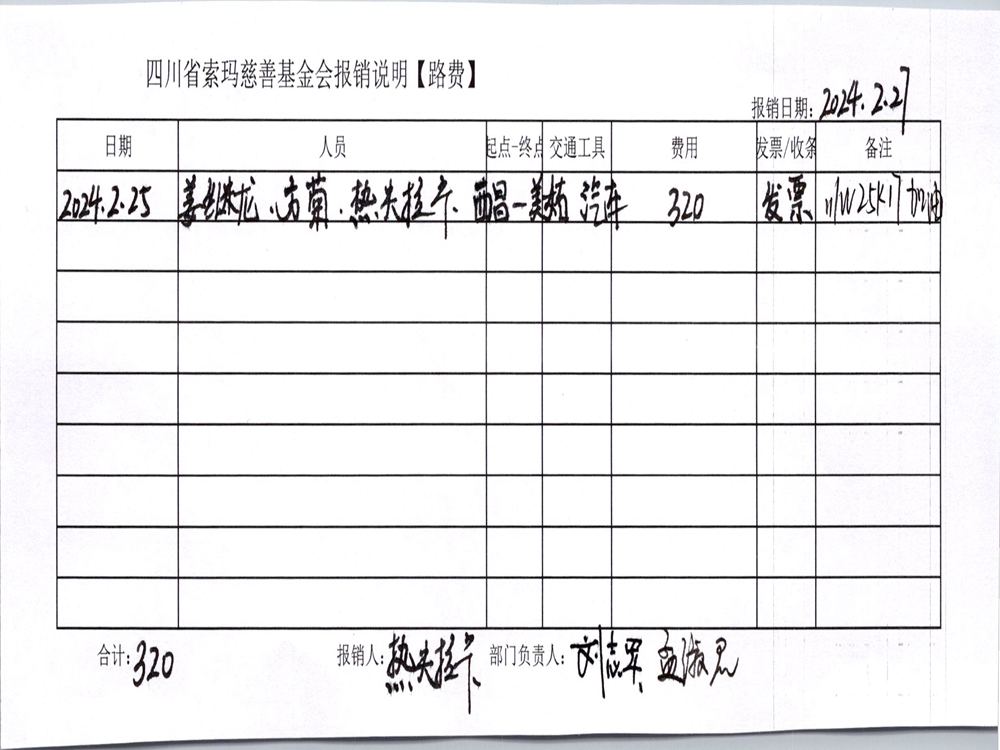 四川省索玛慈善基金会报销说明【路费】
报销日期: 2024.2.27
日期 人员 起点-终点 交通工具 费用 发票/收条 备注
2024.2.25 姜继龙、方菊、热夫拉卡 西昌—美姑 汽车 320 发票 川W25K17加油
合计: 320 报销人: 热夫拉卡 部门负责人: 刘志军、孟淑君